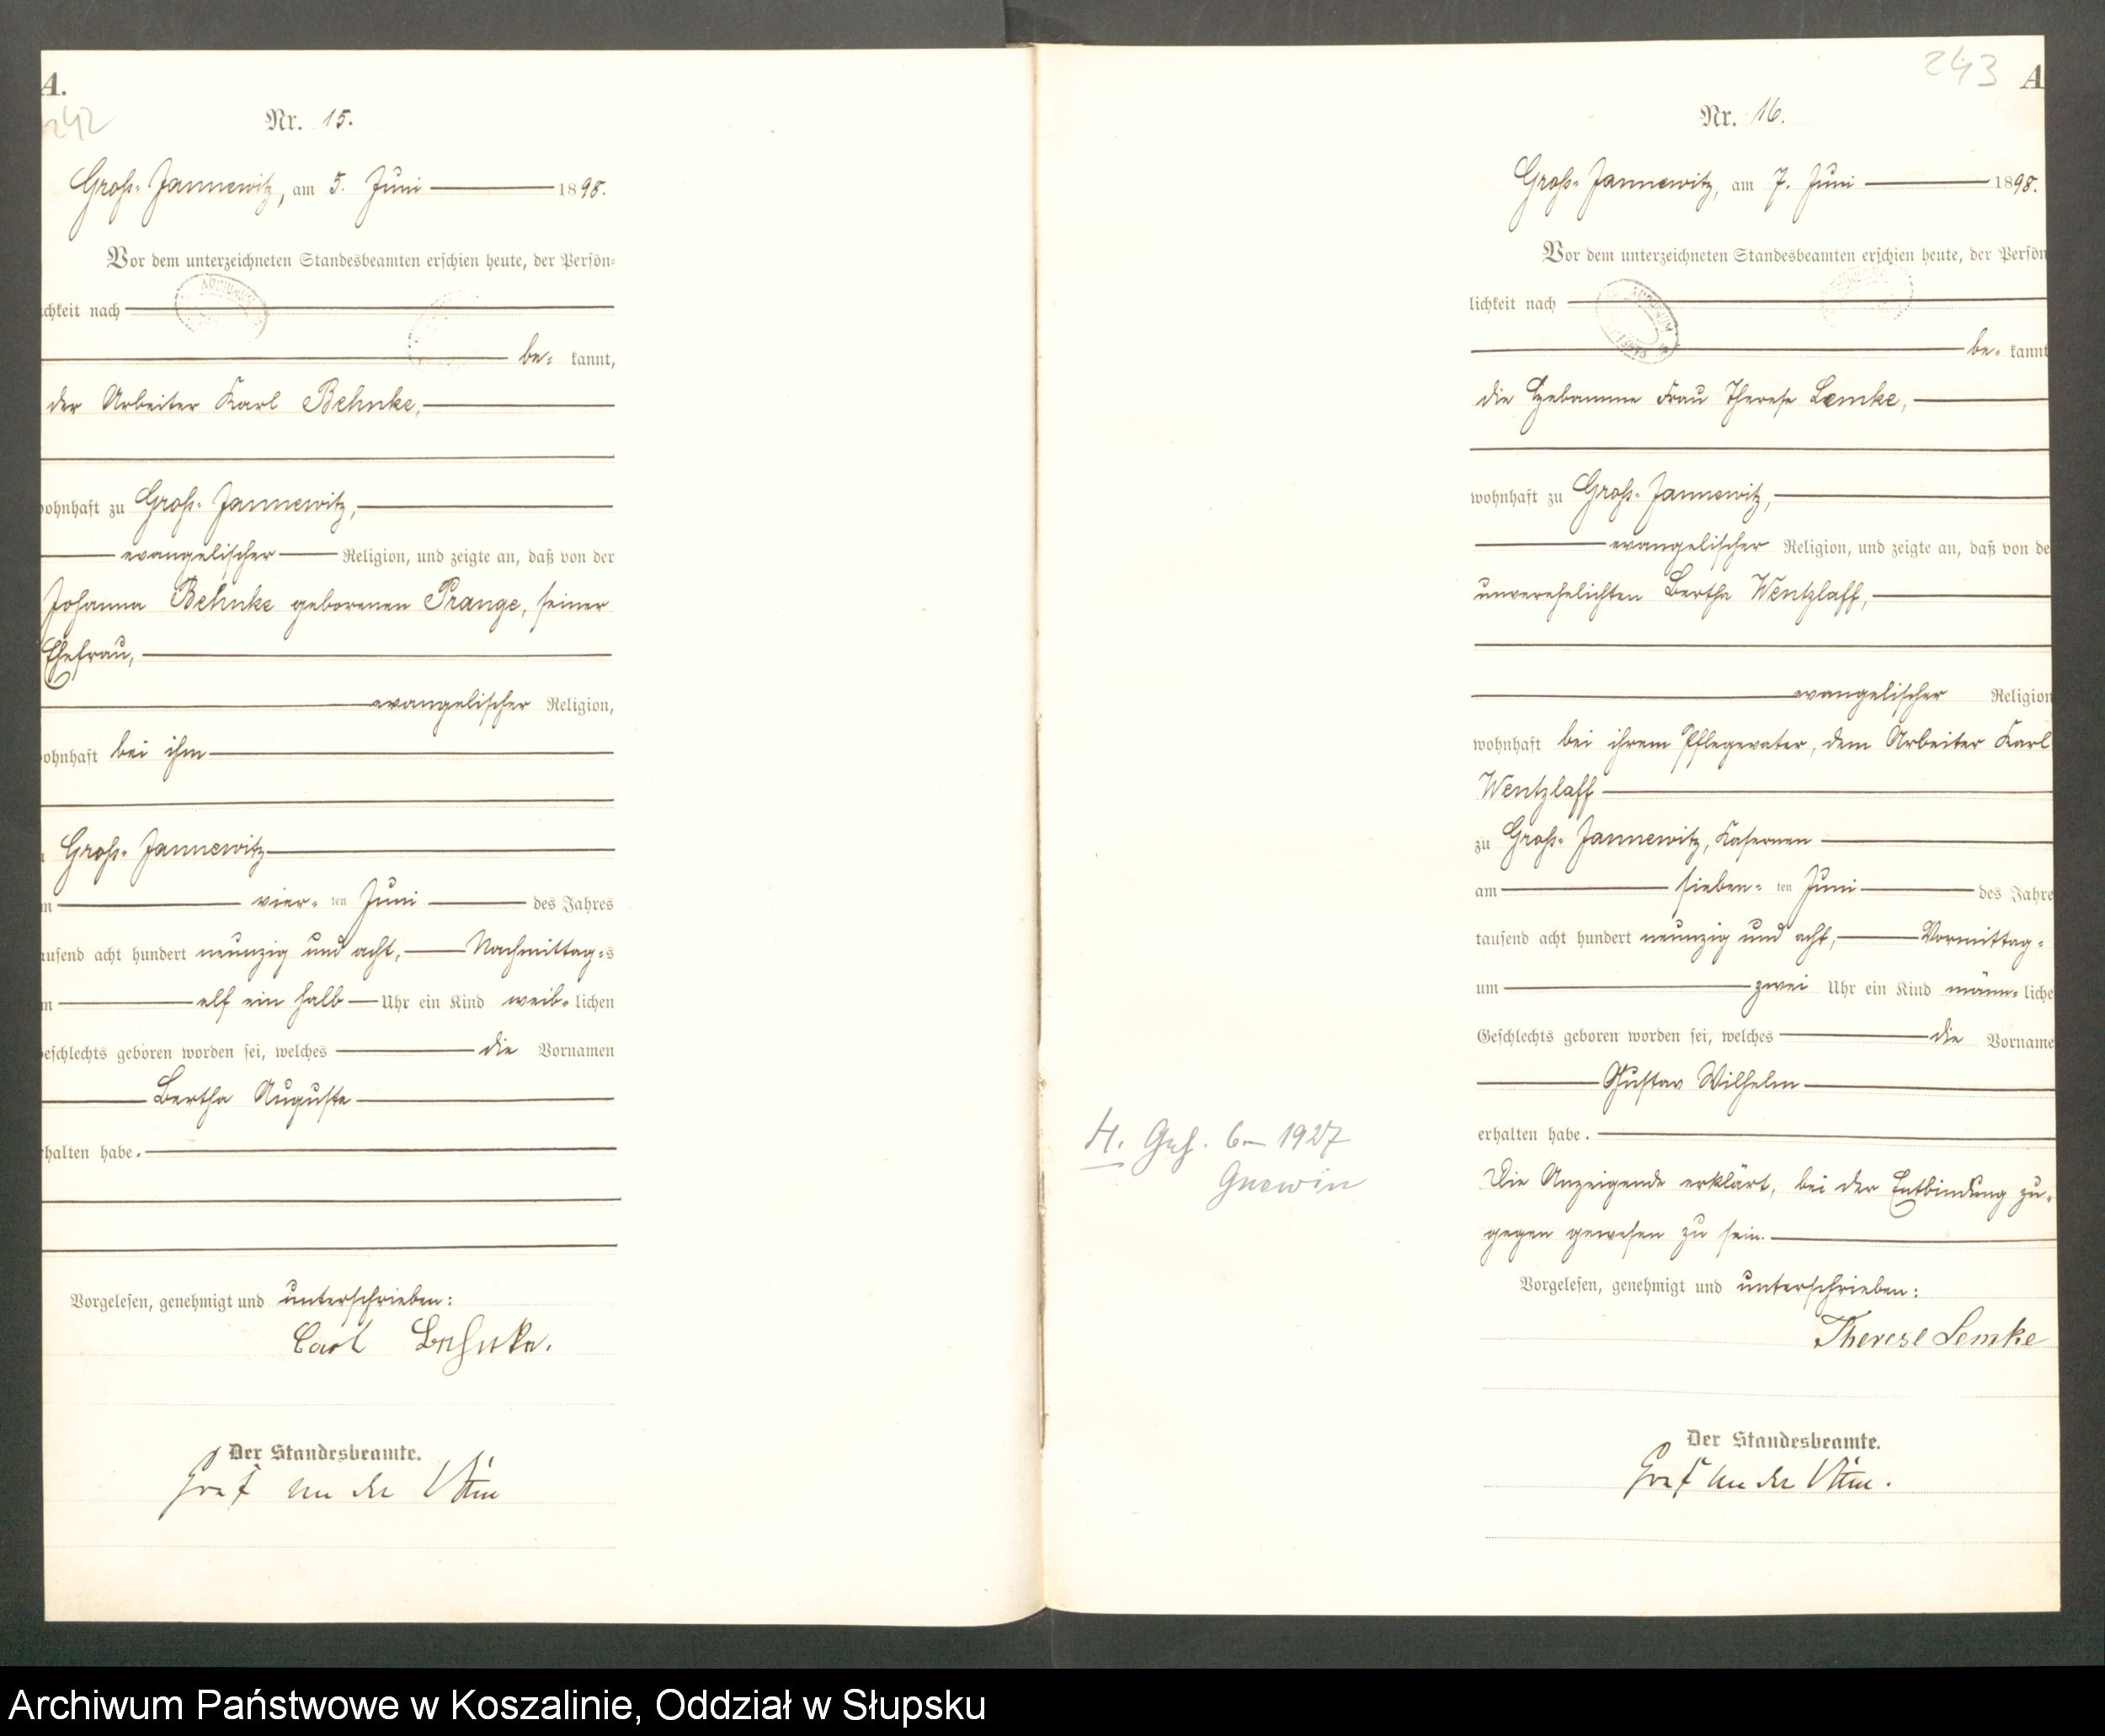 A.
242
Nr. 15.
Groß-Jannewitz, am 5. Juni 1898.
Vor dem unterzeichneten Standesbeamten erschien heute, der Persön-
chkeit nach
be- kannt,
der Arbeiter Karl Behnke,
ohnhaft zu Groß-Jannewitz,
evangelischer Religion, und zeigte an, daß von der
Johanna Behnke geborenen Prange, seiner
Ehefrau,
evangelischer Religion,
ohnhaft bei ihm
Groß-Jannewitz
vier- ten Juni des Jahres
ausend acht hundert neunzig und acht, Nachmittag-s
elf ein halb Uhr ein Kind weib-lichen
eschlechts geboren worden sei, welches die Vornamen
Bertha Auguste
halten habe.
Vorgelesen, genehmigt und unterschrieben:
Carl Behnke.
Der Standesbeamte.
Graf
243
A
Nr. 16.
Groß-Jannewitz, am 7. Juni 1898.
Vor dem unterzeichneten Standesbeamten erschien heute, der Persön
lichkeit nach
be- kannt
die Hebamme Frau Therese Lemke,
wohnhaft zu Groß-Jannewitz,
evangelischer Religion, und zeigte an, daß von de
unverehelichten Bertha Wentzlaff,
evangelischer Religion
wohnhaft bei ihrem Pflegevater, dem Arbeiter Karl
Wentzlaff
zu Groß-Jannewitz, Kasernen
am sieben- ten Juni des Jahre
tausend acht hundert neunzig und acht, Vormittag-
um zwei Uhr ein Kind männ-liche
Geschlechts geboren worden sei, welches die Vorname
Gustav Wilhelm
erhalten habe.
Die Anzeigende erklärt, bei der Entbindung zu-
gegen gewesen zu sein.
Vorgelesen, genehmigt und unterschrieben:
Therese Lemke
Der Standesbeamte.
Graf
H. 1927
Gnewin
Archiwum Państwowe w Koszalinie, Oddział w Słupsku